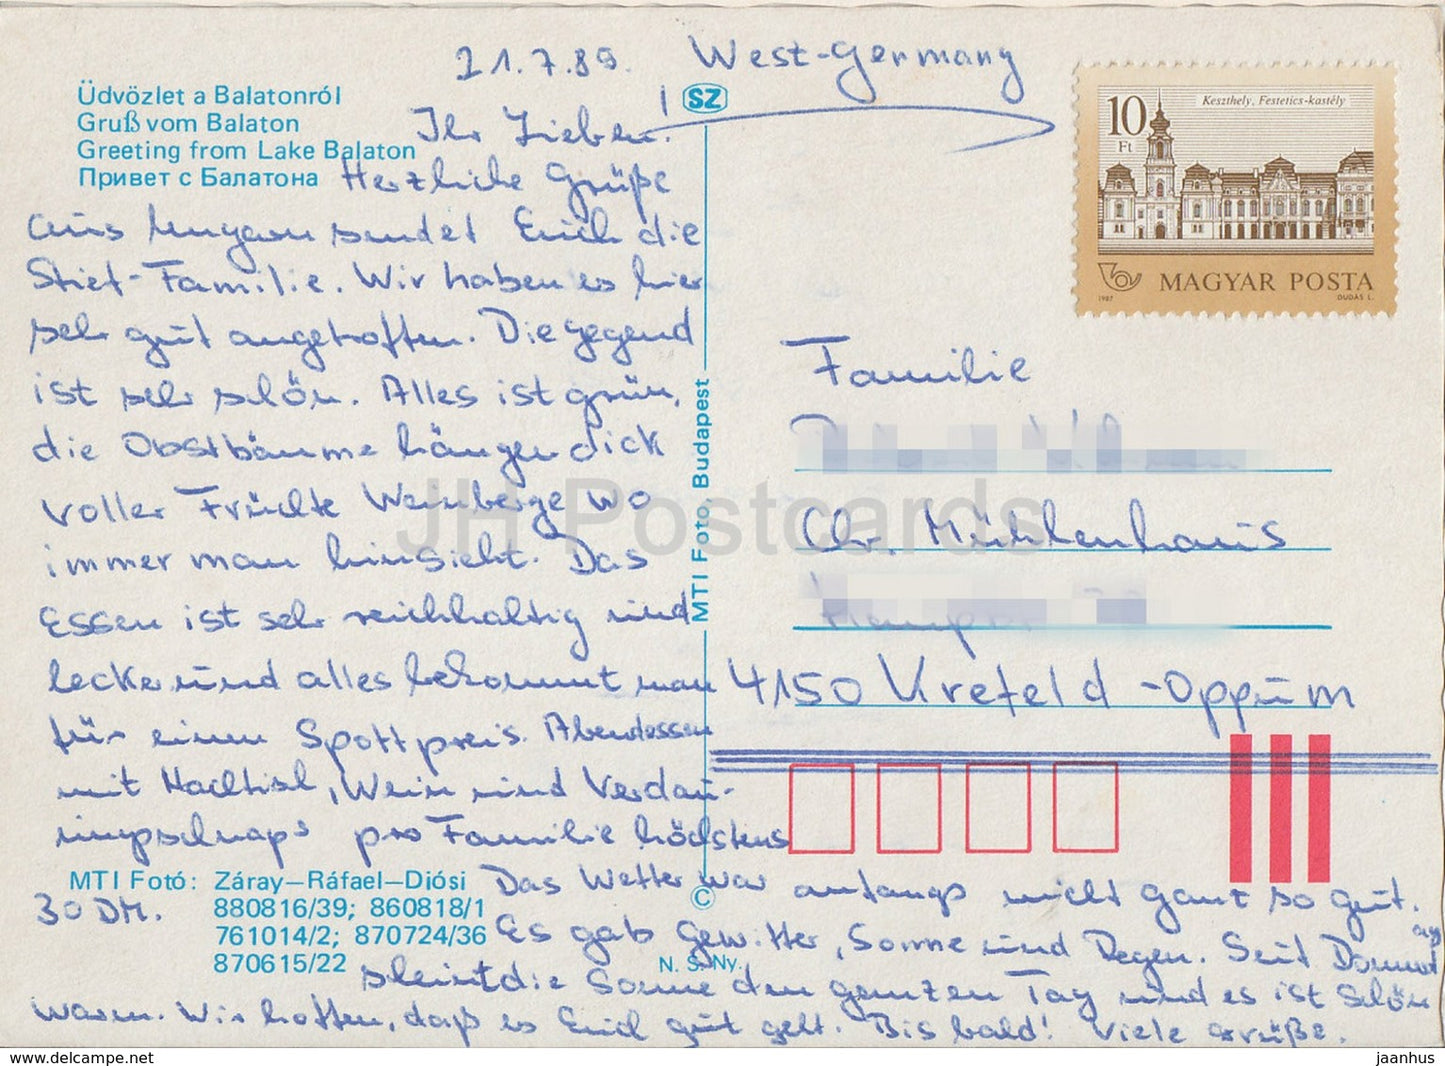 21.7.89. West-Germany
Üdvözlet a Balatonról
Gruß vom Balaton
Greeting from Lake Balaton
Привет с Балатона
SZ
Ihr Lieben!
Herzliche Grüße
aus Ungarn sendet Euch die
Stief-Familie. Wir haben es hier
sehr gut angetroffen. Die Gegend
ist sehr schön. Alles ist grün,
die Obstbäume hängen dick
voller Früchte Weinberge wo
immer man hinsieht. Das
Essen ist sehr reichhaltig und
lecker und alles bekommt man
für einen Spottpreis. Abendessen
mit Nachtisch, Wein und Verdau-
ungsschnaps pro Familie höchstens
30 DM.
Das Wetter war anfangs nicht ganz so gut.
Es gab Gewitter, Sonne und Regen. Seit Donnerstag
scheint die Sonne den ganzen Tag und es ist schön
warm. Wir hoffen, daß es Euch gut geht. Bis bald! Viele Grüße.
MTI Fotó: Záray–Ráfael–Diósi
880816/39; 860818/1
761014/2; 870724/36
870615/22
N. S. Ny.
©
MTI Foto, Budapest
10
Ft
Keszthely, Festetics-kastély
MAGYAR POSTA
1987
DUDÁS L.
Familie
Chr. Mühlenhaus
4150 Krefeld-Oppum
JH Postcards
www.delcampe.net
jaanhus